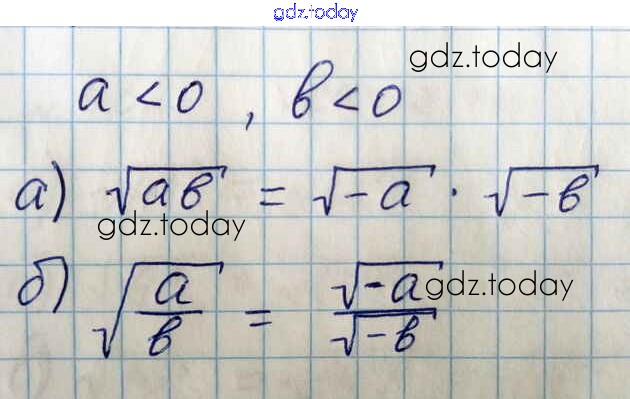 gdz.today
gdz.today
a < 0 , b < 0
а) √ab = √-a · √-b
gdz.today
б) √a/b = √-a/√-b
gdz.today